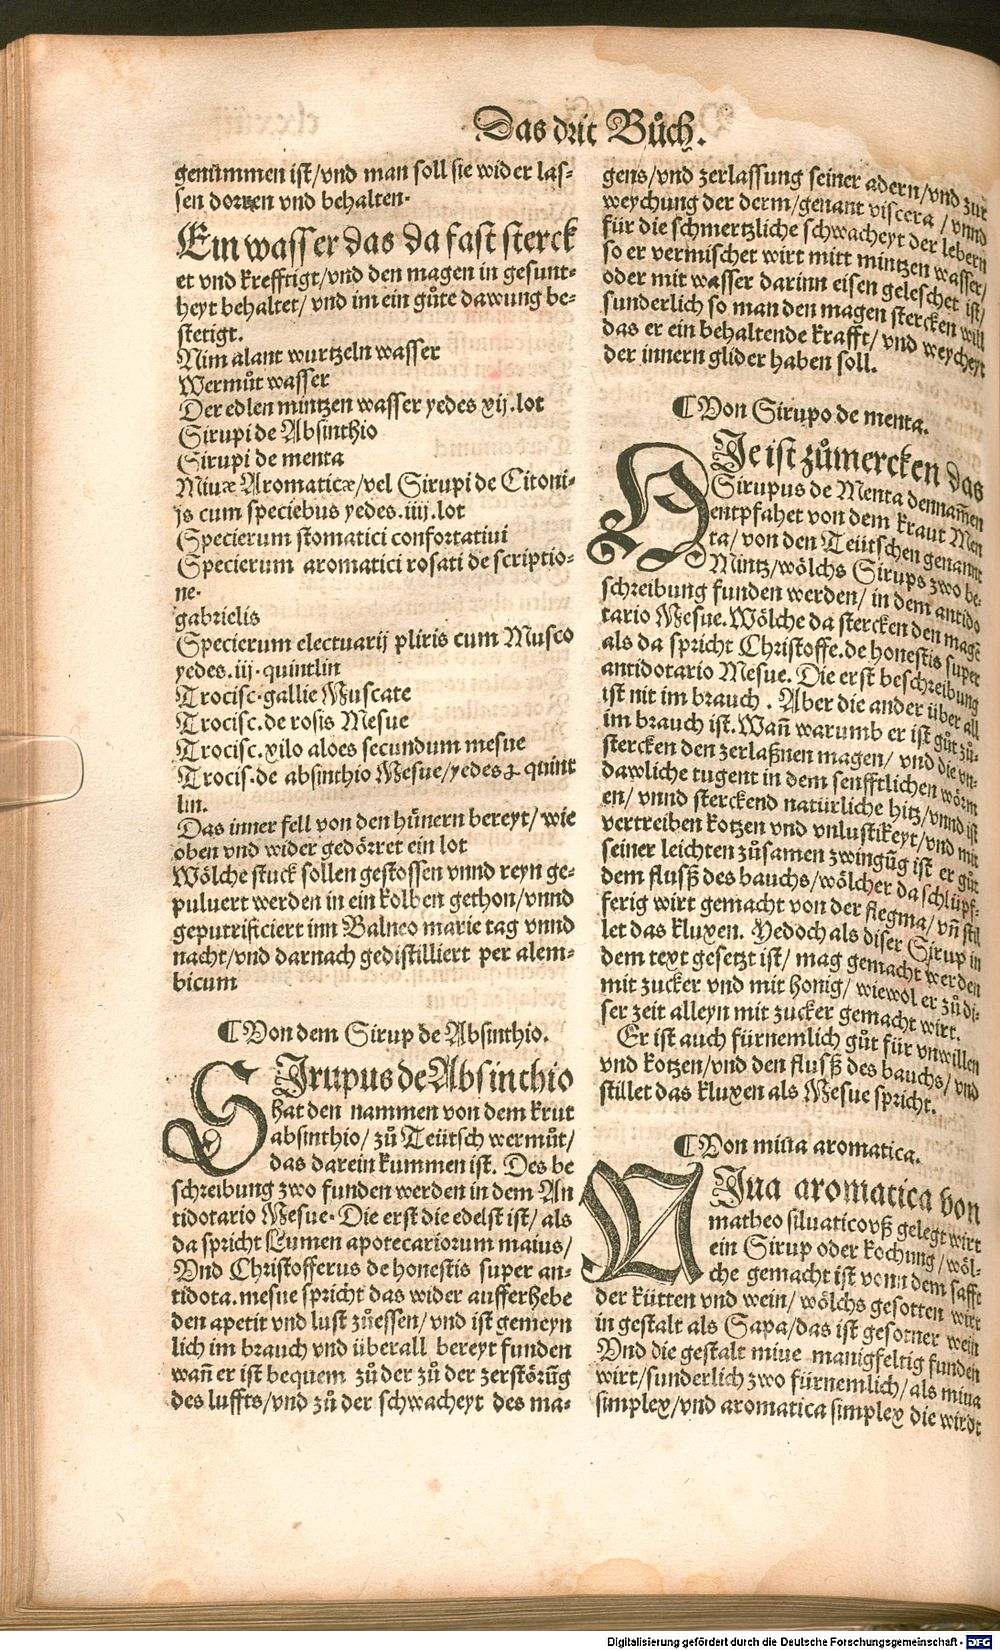 Das drit Bůch.
genummen ist/vnd man soll sie wider las⸗
sen dorren vnd behalten.
Ein wasser das da fast sterck
et vnd krefftigt/vnd den magen in gesunt⸗
heyt behaltet/ vnd im ein gůte dawung be⸗
stetigt.
Nim alant wurtzeln wasser
Wermůt wasser
Der edlen mintzen wasser yedes xij.lot
Sirupi de Absinthio
Sirupi de menta
Miuæ Aromaticæ/vel Sirupi de Citoni⸗
js cum speciebus yedes.iiij.lot
Specierum stomatici confortatiui
Specierum aromatici rosati de scriptio⸗
ne.
gabrielis
Specierum electuarij pliris cum Musco
yedes.iij.quintlin
Trocisc.gallie Muscate
Trocisc.de rosis Mesue
Trocisc.xilo aloes secundum mesue
Trocis.de absinthio Mesue/yedes 2. quint
lin.
Das inner fell von den hünern bereyt/ wie
oben vnd wider gedörret ein lot
Wölche stuck sollen gestossen vnnd reyn ge⸗
puluert werden in ein kolben gethon/vnnd
geputrificiert inn Balneo marie tag vnnd
nacht/vnd darnach gedistilliert per alem⸗
bicum
¶Von dem Sirup de Absinthio.
SIrupus de Absinthio
hat den nammen von dem krut
absinthio/ zů Teütsch wermůt/
das darein kummen ist. Des be
schreibung zwo funden werden in dem An
tidotario Mesue. Die erst die edelst ist/ als
da spricht Lumen apotecariorum maius/
Vnd Christofferus de honestis super an⸗
tidota.mesue spricht das wider aufferhebe
den apetit vnd lust zůessen/vnd ist gemeyn
lich im brauch vnd überall bereyt funden
wañ er ist bequem zů der zů der zerstörũg
des luffts/vnd zů der schwacheyt des ma⸗
gens/vnd zerlassung seiner adern/vnd zůr
weychung der derm/genant viscera / vnnd
für die schmertzliche schwacheyt der lebern
so er vermischet wirt mitt mintzen wasser/
oder mit wasser darinn eisen geleschet ist/
sunderlich so man den magen stercken will
das er ein behaltende krafft/ vnd weycheyt
der innern glider haben soll.
¶Von Sirupo de menta.
HIe ist zůmercken das
Sirupus de Menta den nam̃en
entpfahet von dem kraut Men
ta/ von den Teütschen genannt
Mintz/wölchs Sirups zwo be⸗
schreibung funden werden/ in dem antido
tario Mesue. Wölche da stercken den magẽ
als da spricht Christoffe.de honestis super
antidotario Mesue. Die erst beschreibung
ist nit im brauch . Aber die ander über all
im brauch ist. Wañ warumb er ist gůt zů⸗
stercken den zerlaßnen magen/ vnd die vn⸗
dawliche tugent in dem senfftlichen wörm
en/ vnnd sterckend natürliche hitz/vnnd ist
vertreiben kotzen vnd vnlustikeyt/vnd mit
seiner leichten zůsamen zwingũg ist er gůt
dem flusß des bauchs/wölcher da schlüpf⸗
ferig wirt gemacht von der flegma/ vñ stil
let das kluxen. Yedoch als diser Sirup in
dem text gesetzt ist/ mag gemacht werden
mit zucker vnd mit honig/ wiewol er zů di⸗
ser zeit alleyn mit zucker gemacht wirt.
Er ist auch fürnemlich gůt für vnwillen
vnd kotzen/vnd den flusß des bauchs/ vnd
stillet das kluxen als Mesue spricht.
¶Von miua aromatica.
MIua aromatica von
matheo siluatico vß gelegt wirt
ein Sirup oder kochung/ wöl⸗
che gemacht ist vonn dem safft
der kütten vnd wein/ wölchs gesotten wirt
in gestalt als Sapa/das ist gesotner wein
Vnd die gestalt miue manigfeltig funden
wirt/sunderlich zwo fürnemlich/ als miua
simplex/vnd aromatica simplex die wirdt
Digitalisierung gefördert durch die Deutsche Forschungsgemeinschaft - DFG